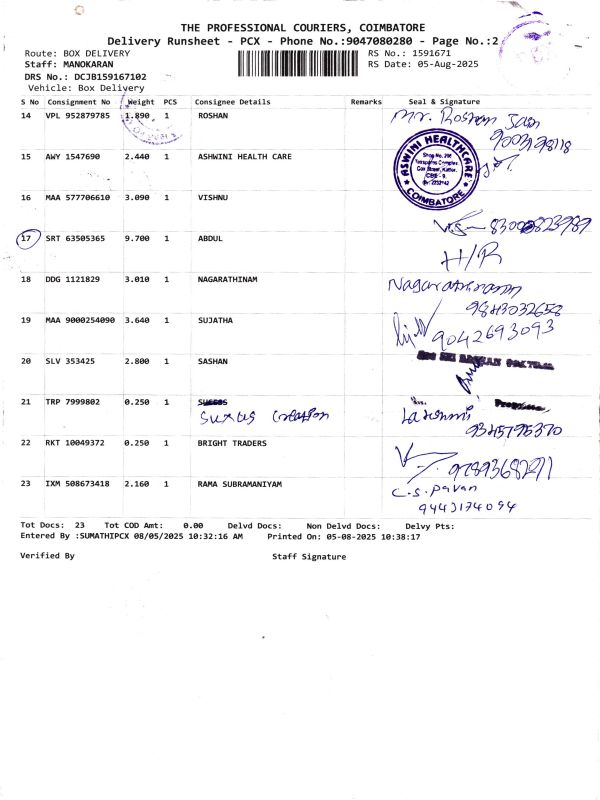 THE PROFESSIONAL COURIERS, COIMBATORE
Delivery Runsheet - PCX - Phone No.:9047080280 - Page No.:2
Route: BOX DELIVERY RS No.: 1591671
Staff: MANOKARAN RS Date: 05-Aug-2025
DRS No.: DCJB159167102
Vehicle: Box Delivery
S No Consignment No Weight PCS Consignee Details Remarks Seal & Signature
14 VPL 952879785 1.890 1 ROSHAN Mr. Roshan Jain
15 AWY 1547690 2.440 1 ASHWINI HEALTH CARE ASWINI HEALTHCARE COIMBATORE
16 MAA 577706610 3.090 1 VISHNU
17 SRT 63505365 9.700 1 ABDUL H/R
18 DDG 1121829 3.010 1 NAGARATHINAM Nagarathinam
9843032658
19 MAA 9000254090 3.640 1 SUJATHA 9042693093
20 SLV 353425 2.800 1 SASHAN
21 TRP 7999802 0.250 1
Suxus Creation Lakshmi
9345795370
22 RKT 10049372 0.250 1 BRIGHT TRADERS
23 IXM 508673418 2.160 1 RAMA SUBRAMANIYAM C.S. Pavan
9443174094
Tot Docs: 23 Tot COD Amt: 0.00 Delvd Docs: Non Delvd Docs: Delvy Pts:
Entered By :SUMATHIPCX 08/05/2025 10:32:16 AM Printed On: 05-08-2025 10:38:17
Verified By Staff Signature